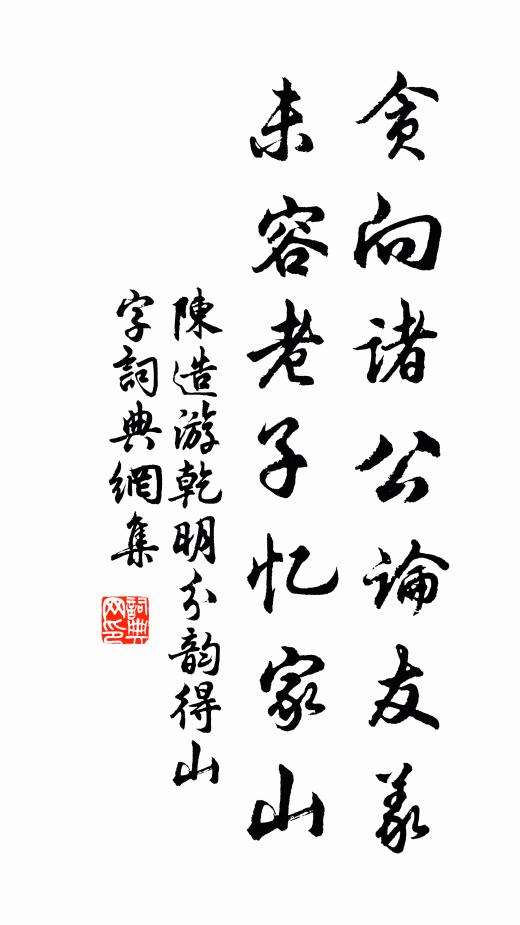 贪向诸公論友義
未容老子忆家山
陳造游乾明分韵得山
字詞典網集
詞典网印